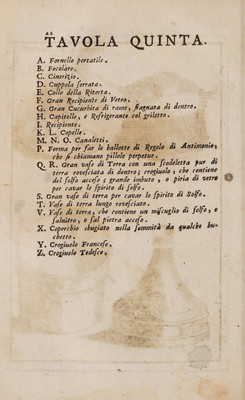 TAVOLA QUINTA.
A. Fornello portatile.
B. Focolare.
C. Cinerizio.
D. Cuppola serrata.
E. Collo della Ritorta.
F. Gran Recipiente di Vetro.
G. Gran Cucurbita di rame, stagnata di dentro.
H. Capitello, o Refrigerante col grilletto.
I. Recipiente.
K. L. Cepolle.
M. N. O. Canaletti.
P. Forma per far le ballotte di Regolo di Antimonio,
che si chiamano pillole perpetue.
Q. R. Gran vaso di Terra con una scodeletta pur di
terra rovesciata di dentro; crogiuolo, che contiene
del solfo acceso; grande imbuto, o piria di vetro
per cavar lo spirito di solfo.
S. Gran vaso di terra per cavar lo spirito di Solfo.
T. Vaso di terra lungo rovesciato.
V. Vaso di terra, che contiene un miscuglio di solfo, e
salnitro, o sal pietra acceso.
X. Coperchio sbugiato nella sommità da qualche bu-
chetto.
Y. Crogiuolo Francese.
Z. Crogiuolo Tedesco.